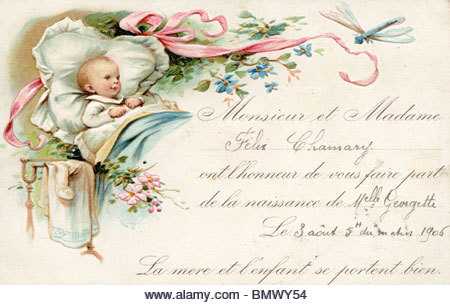 Monsieur et Madame
Félix Chamary
ont l'honneur de vous faire part
de la naissance de Melle Georgette
Le 3 août 5h du matin 1906
La mere et l'enfant se portent bien.
alamy
BMWY54